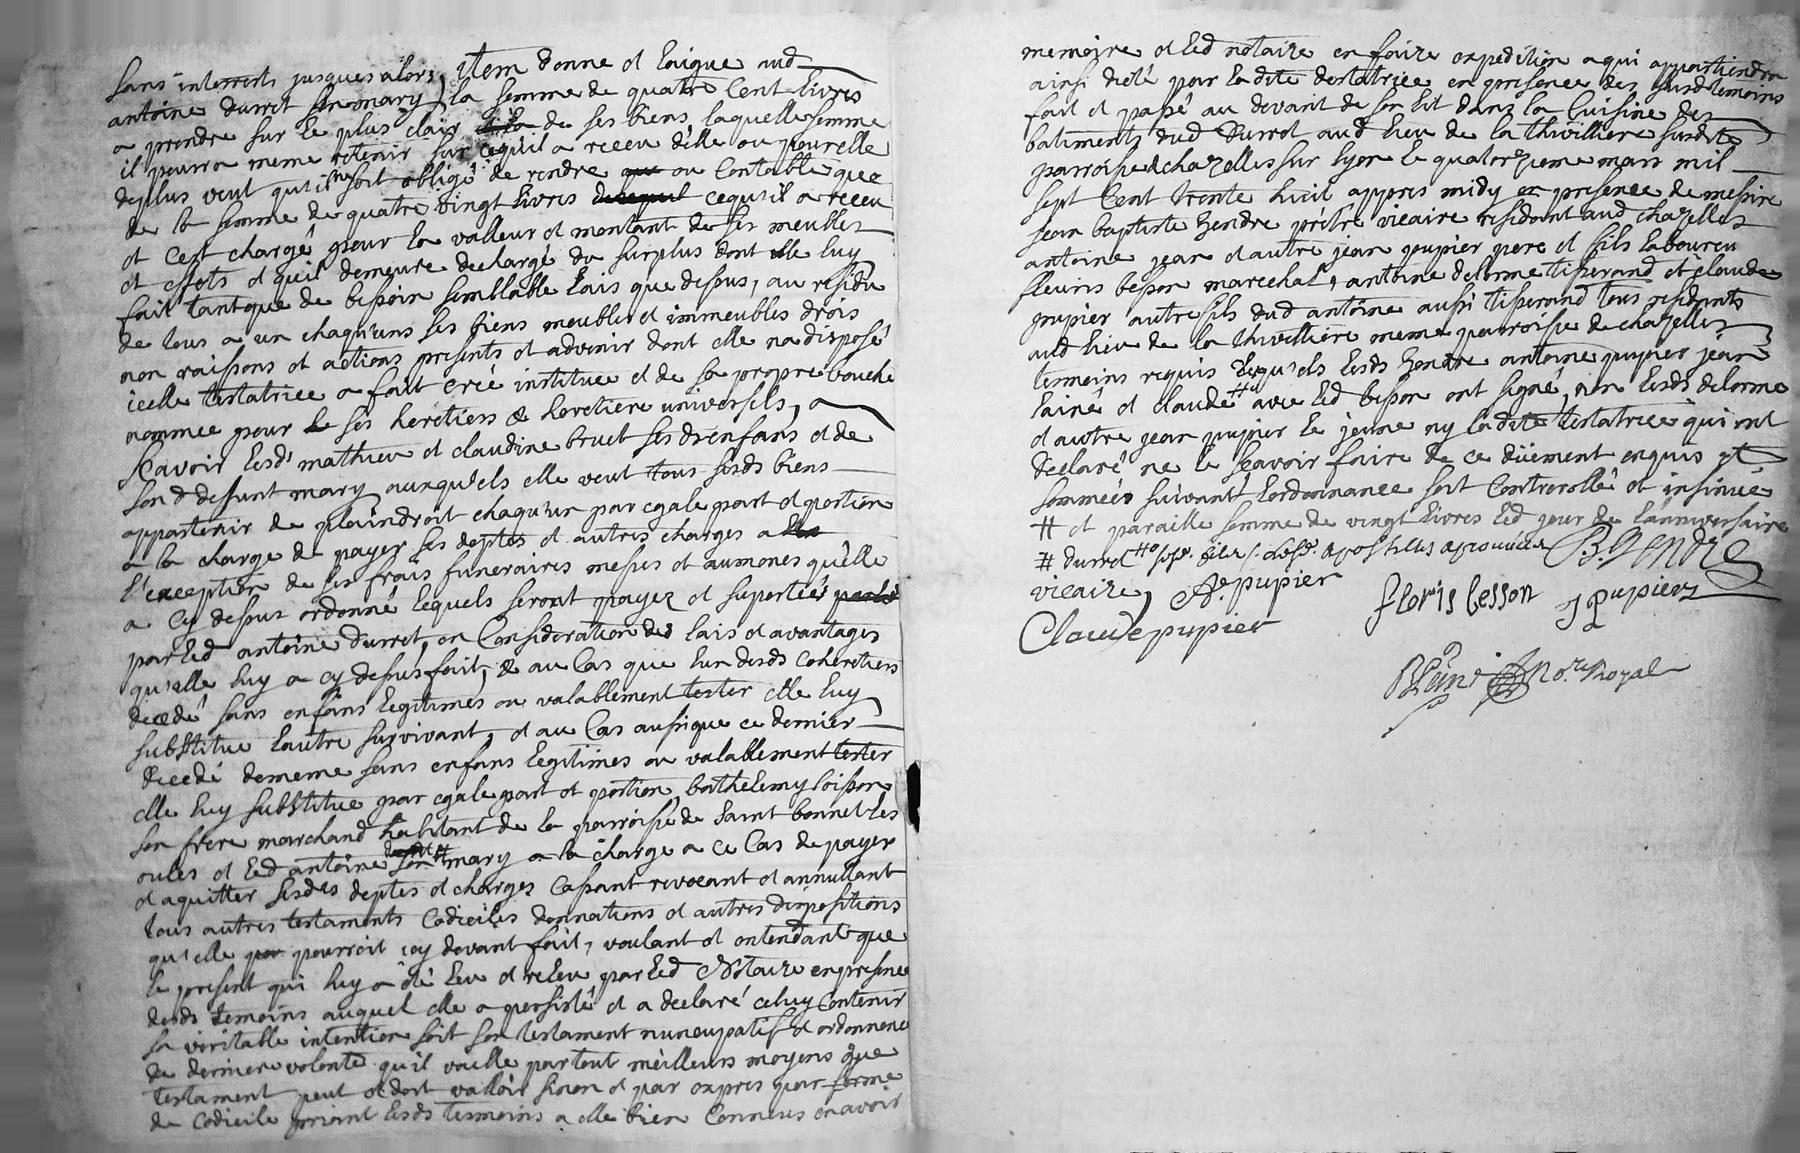 sans interrests jusques alors, item donne et laigue aud
antoine durret son mary, la somme de quatre cent livres
a prendre sur le plus clair de ses biens laquelle somme
il pourra meme retenir sur cequil a receu delle ou pour elle
deplus veut qu'il ne soit obligé de rendre ou contable que
de la somme de quatre vingt livres cequ'il a receu
et cest chargé pour la valleur et montant de ses meubles
et effets et quil demeure dechargé du surplus dont elle luy
fait tant que de bessoin semblable lais que dessus, au residu
de tous a un chaqu'uns ses biens meubles et immeubles drois
non raissons et actions presents et advenir dont elle na disposé
icelle testatrice a fait creé institue et de sa propre bouche
nommée pour ses heretiers & heretiere universels, a
scavoir lesds mathieu et claudine bruet ses drs enfans et de
son d deffunt mary auxqu'els elle veut tous sesds biens
appartenir de plaindroit chaqu'un par egale part et portion
a la charge de payer ses deptes et autres charges a
l'exception de ses frais funeraires messes et aumones qu'elle
a cy dessus ordonné lequels seront payez et suportées
par led antoine durret, en consideration des lais et avantages
qu'elle luy a cy dessus fait, & au cas que lun desds coheretiers
decedé sans enfans legitimes ou valablement tester elle luy
substitue lautre survivant, et au cas aussique ce dernier
decedé dememe sans enfans legitimes ou valablement tester
elle luy substitue par egale part et portion barthelemy loisson
son frere marchand habitant de la parroisse de saint bonnet les
oules et led antoine durret # mary a la charge a ce cas de payer
et aquitter sesdes deptes et charges cassant revocant et annullant
tous autres testaments codiciles donnations et autres dispositions
qu'elle pourroit icy devant fait, voulant et entendant que
le present qui luy a été leu et releu par led Notaire en presence
desds temoins auquel elle a persisté et a declaré celuy contenir
sa veritable intention soit son testament nuncupatif et ordonnence
de derniere volonté qu'il vaille par tout mêilleurs moyens que
testament peut et doit valloir sinon et par expres pour forme
de codicile priant lesds tesmoins a elle bien connus en avoir
memoire et led notaire en faire expedition a qui appartiendra
ainsi dicté par ladite testatrice en presence des susd temoins
fait et passé au devant de son lit dans la cuisine des
batiments dud durret aud lieu de la thivilliere susdite
parroisse de chazelles sur lyon le quatorzieme mars mil
sept cent trente huit appres midy en presence de messire
jean baptiste gendre prêtre vicaire residant aud chazelles
antoine jean et autre jean pupier pere et fils laboureu
fleuris besson marechal, antoine delorme tisserand et claude
pupier autre fils dud antoine aussi tisserand tous residents
aud lieu de la thivilliere meme parroisse de chazelles
temoins requis lequ'els lesds gendre antoine pupier jean
lainé et claude # avec led besson ont signé, non lesds delorme
et autre jean pupier le jeune ny ladite testatrice qui ont
declaré ne le sçavoir faire de ce düement enquis et
sommées suivant lordonnance soit controrollé et insinué
# et paraille somme de vingt livres led jour de lanniversaire
# durret apostilles aprouvées B. Gendre
vicaire, A. pupier floris besson J Pupier
Claude pupier
No.re Royal